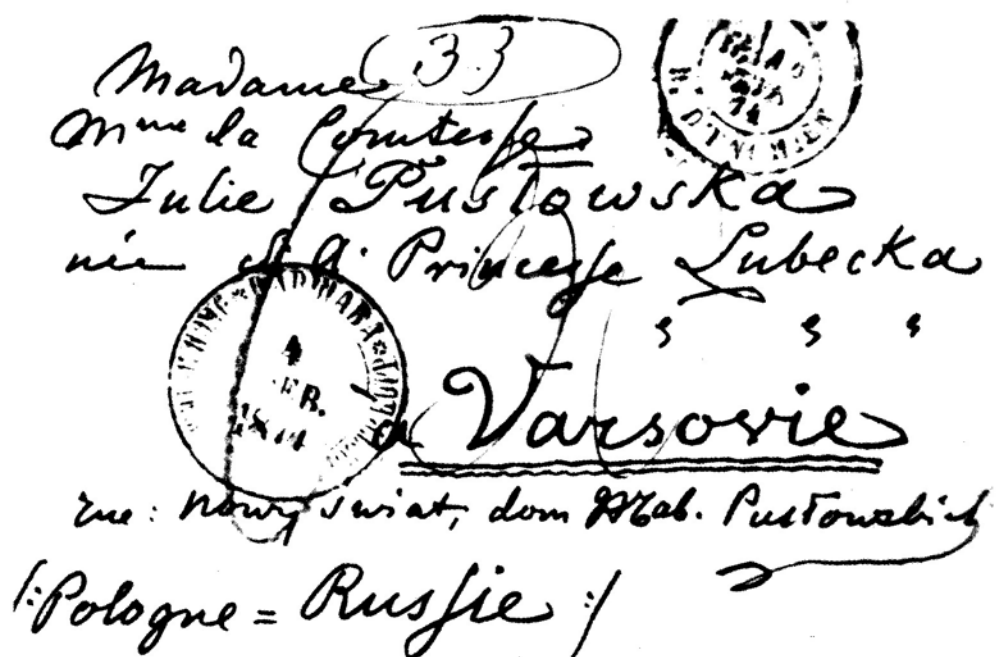 Madame 33
Mme la Comtesse
Julie Pusłowska
née S. A. Princesse Lubecka
à Varsovie
rue: Nowy Świat, dom Hrab. Pusłowskich
/: Pologne = Russie :/
4
1874